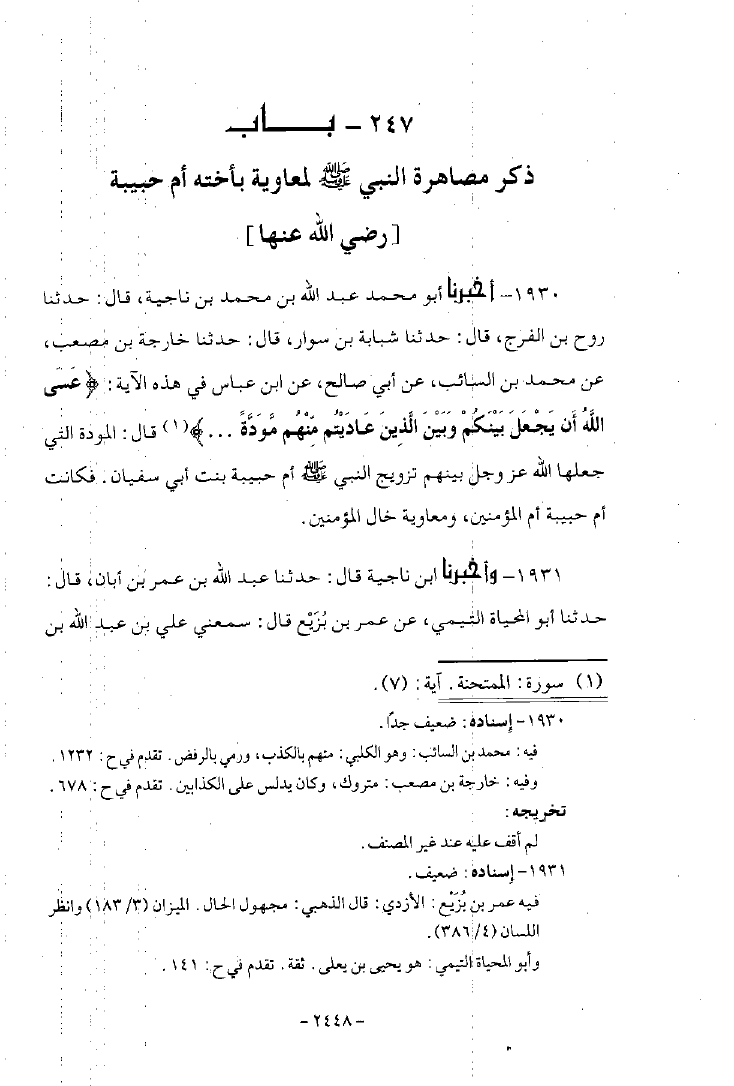 ٢٤٧ - بـــــــاب
ذكر مصاهرة النبي ﷺ لمعاوية بأخته أم حبيبة
[رضي الله عنها]
١٩٣٠- أخبرنا أبو محمد عبد الله بن محمد بن ناجية، قال: حدثنا
روح بن الفرج، قال: حدثنا شبابة بن سوار، قال: حدثنا خارجة بن مصعب،
عن محمد بن السائب، عن أبي صالح، عن ابن عباس في هذه الآية: ﴿عَسَى
اللَّهُ أَن يَجْعَلَ بَيْنَكُمْ وَبَيْنَ الَّذِينَ عَادَيْتُم مِّنْهُم مَّوَدَّةً ...﴾(١) قال: المودة التي
جعلها الله عز وجل بينهم تزويج النبي ﷺ أم حبيبة بنت أبي سفيان. فكانت
أم حبيبة أم المؤمنين، ومعاوية خال المؤمنين.
١٩٣١- وأخبرنا ابن ناجية قال: حدثنا عبد الله بن عمر بن أبان، قال:
حدثنا أبو المحياة التيمي، عن عمر بن بُزَيْع قال: سمعني علي بن عبد الله بن
(١) سورة: الممتحنة. آية: (٧).
١٩٣٠- إسناده: ضعيف جدًا.
فيه: محمد بن السائب: وهو الكلبي: متهم بالكذب، ورمي بالرفض. تقدم في ح: ١٢٣٢.
وفيه: خارجة بن مصعب: متروك، وكان يدلس على الكذابين. تقدم في ح: ٦٧٨.
تخريجه:
لم أقف عليه عند غير المصنف.
١٩٣١- إسناده: ضعيف.
فيه عمر بن بُزَيْع: الأزدي: قال الذهبي: مجهول الحال. الميزان (٣/ ١٨٣) وانظر
اللسان (٤/ ٣٨٦).
وأبو المحياة التيمي: هو يحيى بن يعلى. ثقة. تقدم في ح: ١٤١.
-٢٤٤٨-